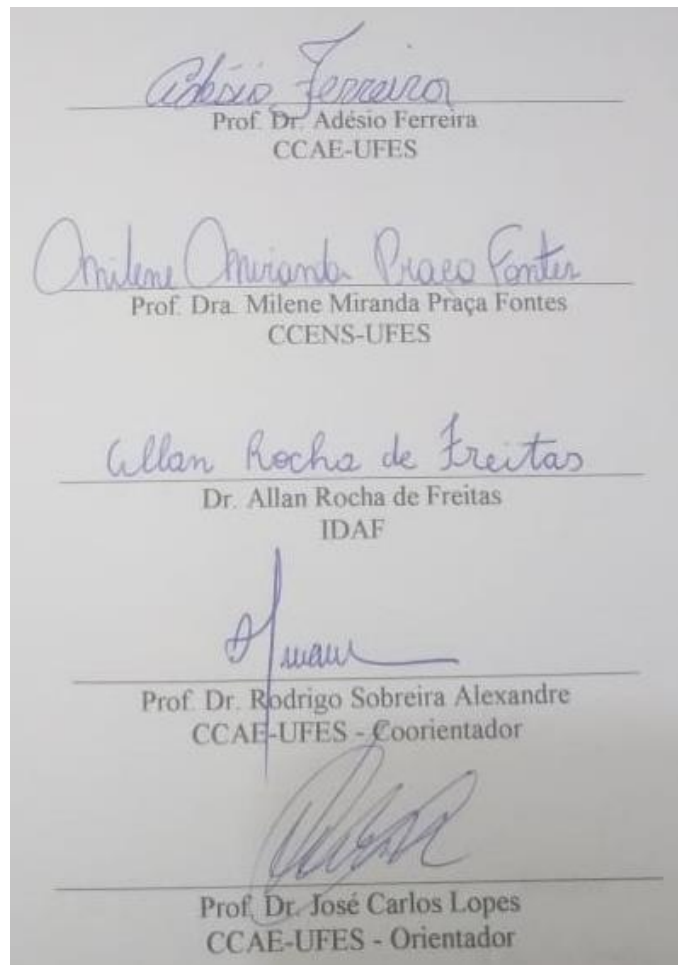 Adésio Ferreira
Prof. Dr. Adésio Ferreira
CCAE-UFES
Milene Miranda Praça Fontes
Prof. Dra. Milene Miranda Praça Fontes
CCENS-UFES
Allan Rocha de Freitas
Dr. Allan Rocha de Freitas
IDAF
Prof. Dr. Rodrigo Sobreira Alexandre
CCAE-UFES - Coorientador
Prof. Dr. José Carlos Lopes
CCAE-UFES - Orientador